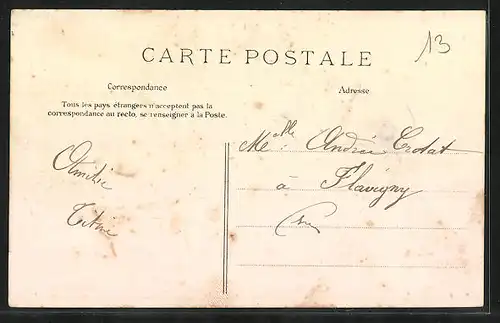 13
CARTE POSTALE
Correspondance
Adresse
Tous les pays étrangers n'acceptent pas la
correspondance au recto, se renseigner à la Poste.
Melle Crotat
à Flavigny
Amitié
Titine